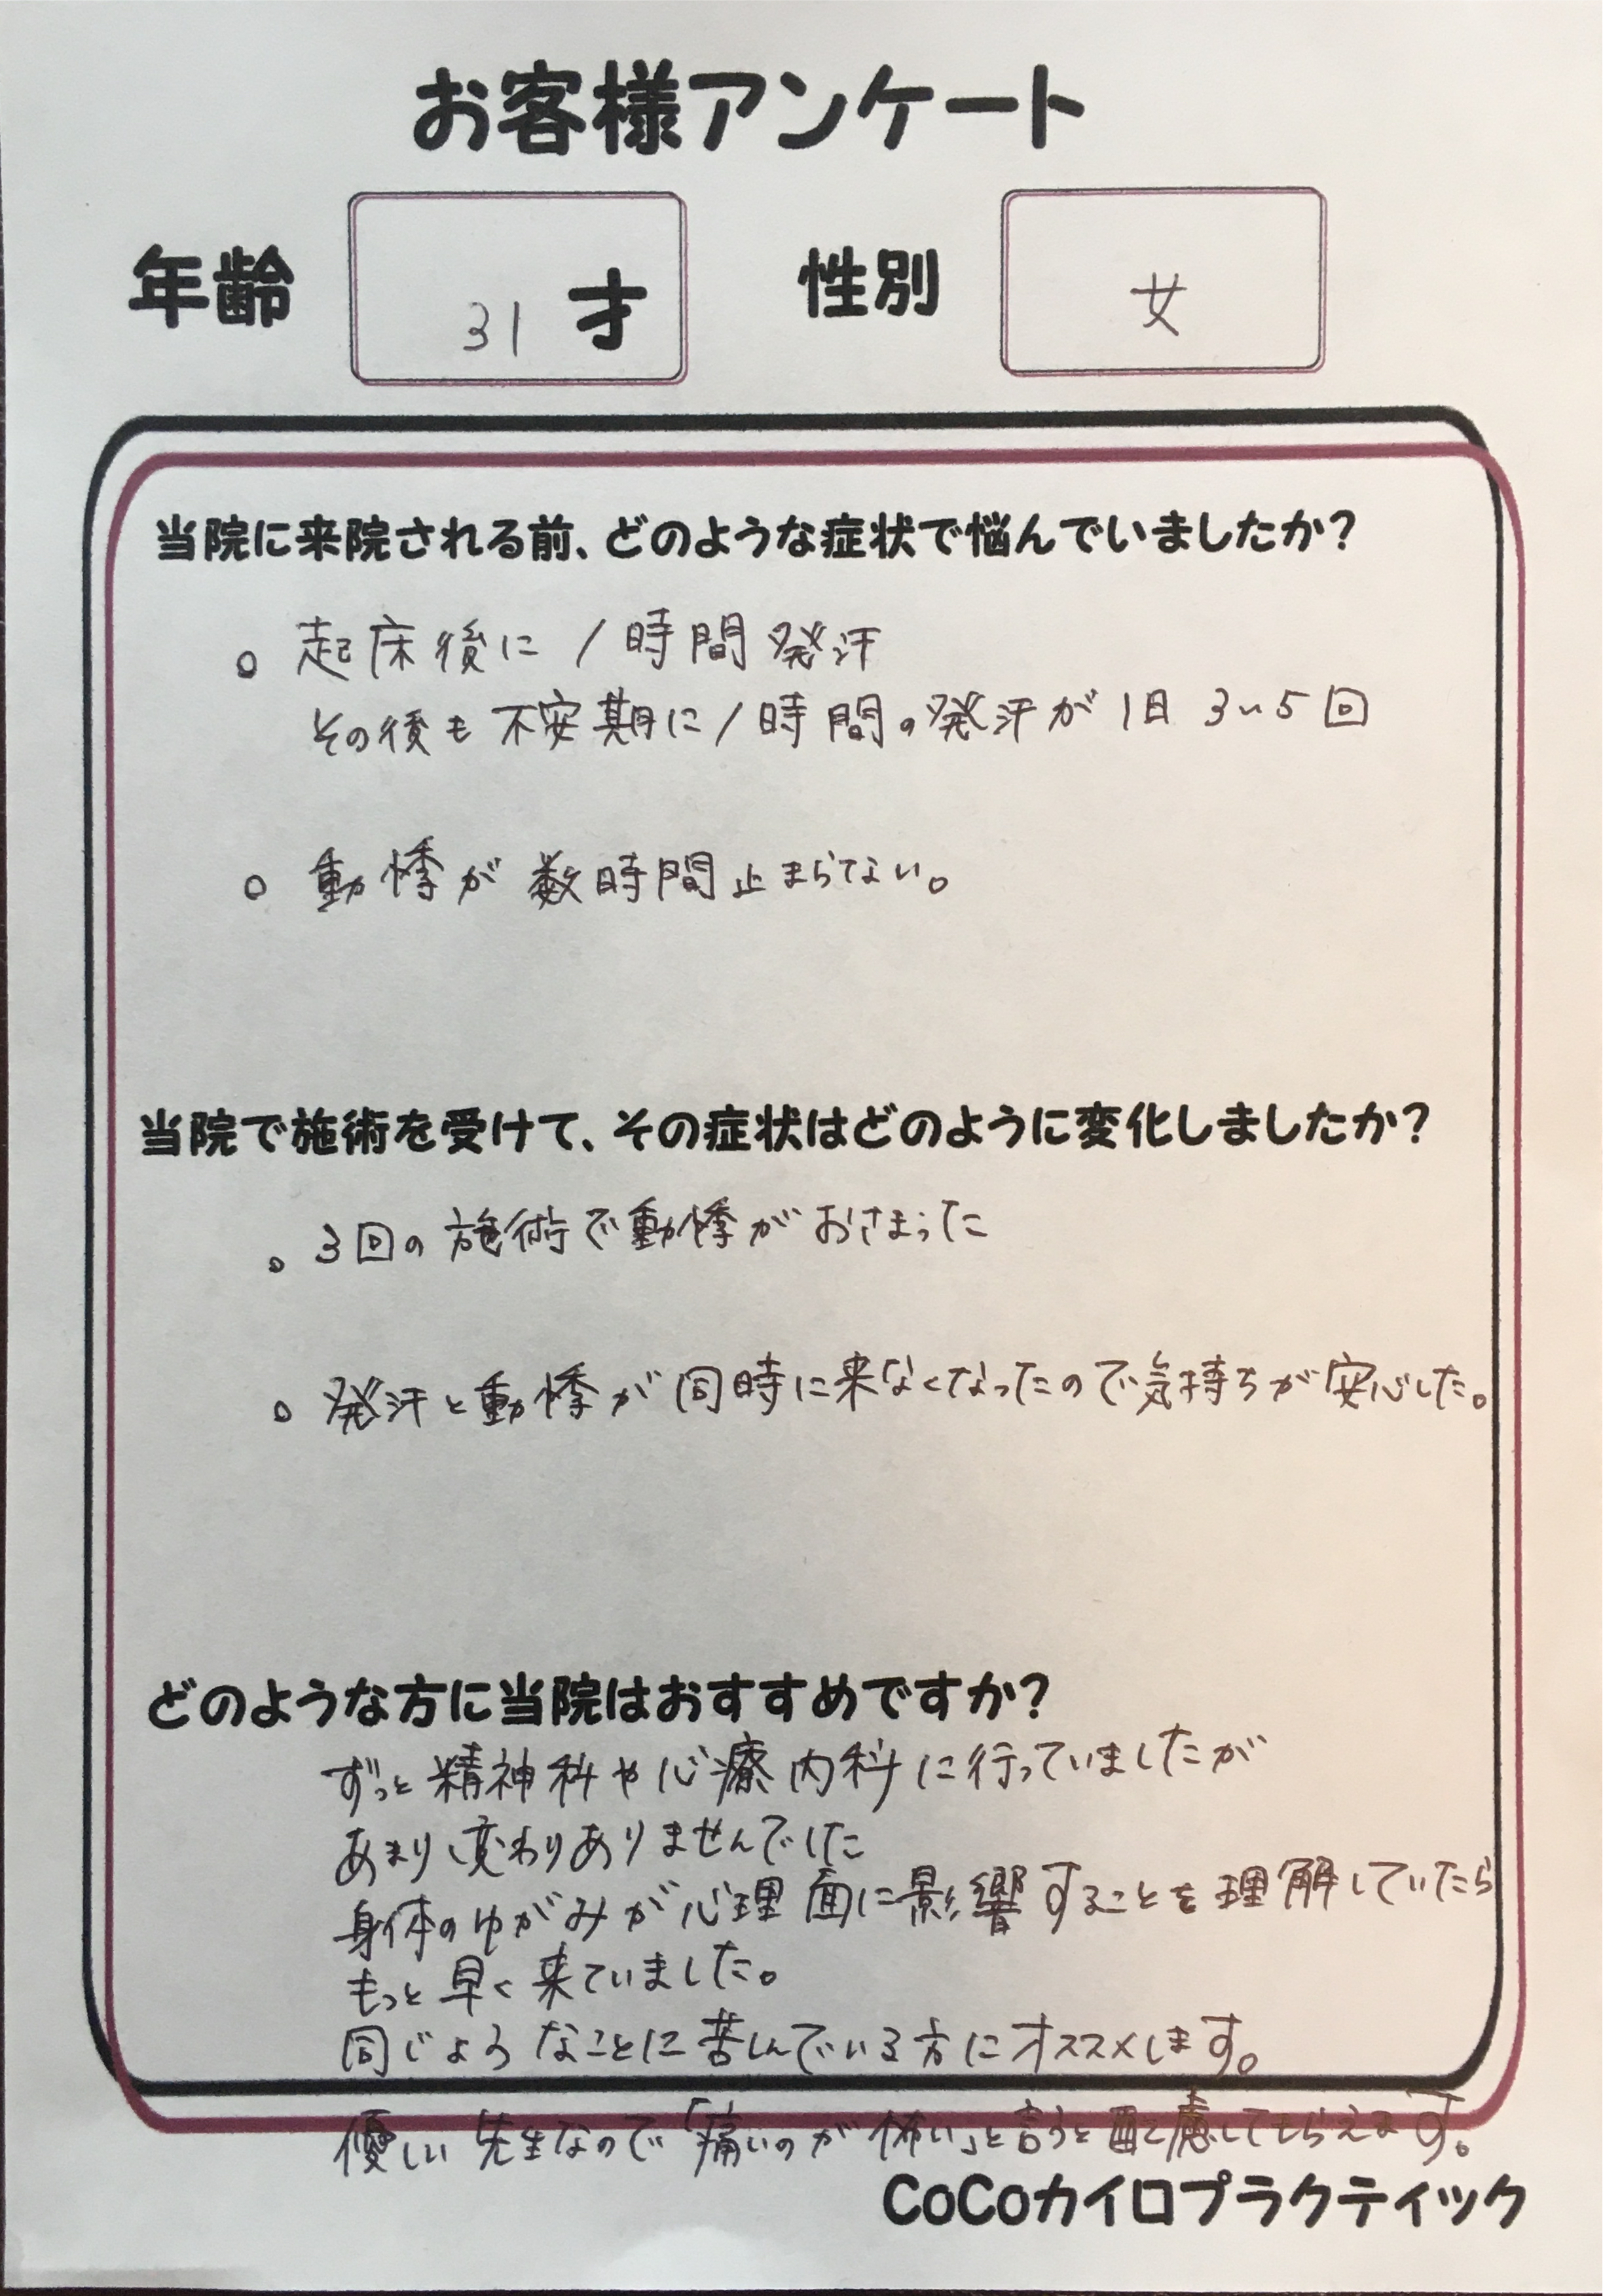 お客様アンケート
年齢 31才 性別 女
当院に来院される前、どのような症状で悩んでいましたか?
。起床後に1時間発汗
その後も不安期に1時間の発汗が1日3~5回
。動悸が数時間止まらない。
当院で施術を受けて、その症状はどのように変化しましたか?
。3回の施術で動悸がおさまった
。発汗と動悸が同時に来なくなったので気持ちが安心した。
どのような方に当院はおすすめですか?
ずっと精神科や心療内科に行っていましたが
あまり変わりありませんでした
身体のゆがみが心理面に影響することを理解していたら
もっと早く来ていました。
同じようなことに苦しんでいる方にオススメします。
優しい先生なので「痛いのが怖い」と言うと配慮してもらえます。
CoCoカイロプラクティック